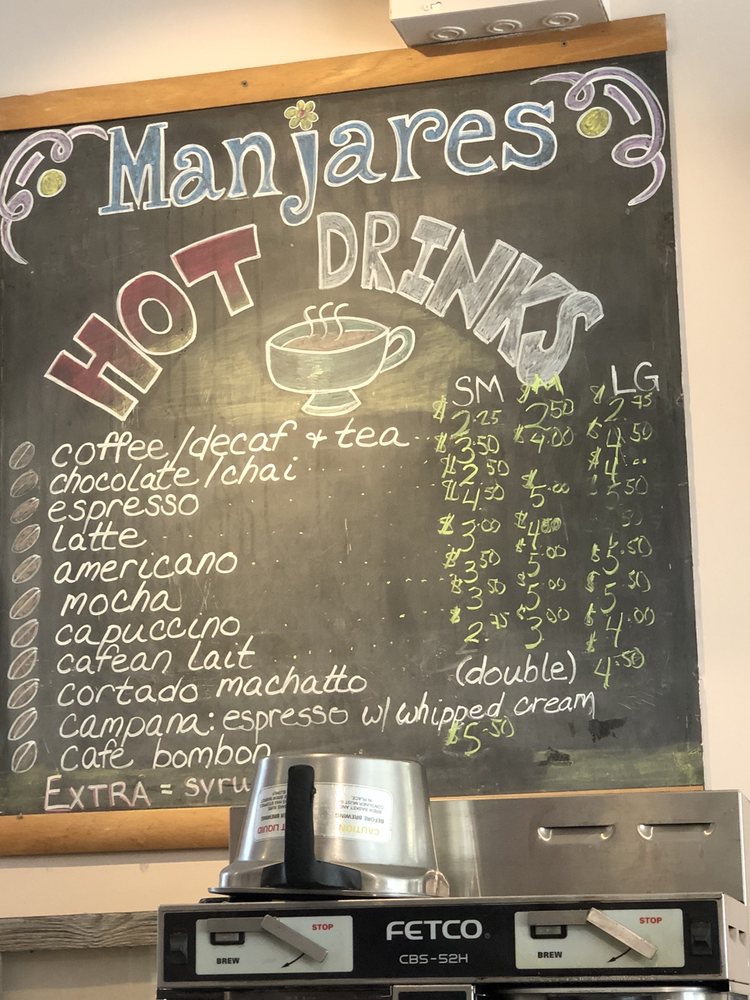 Manjares
HOT DRINKS
SM M LG
coffee/decaf + tea $2.25 2.50 $2.75
chocolate/chai $3.50 4.00 $4.50
espresso $2.50 $4.
latte $4.50 $5.00 5.50
americano $3.00
mocha 3.50 5.00 $5.50
capuccino $3.50 5.00 $5.50
cafean lait $2.75 3.00 $4.00
cortado machatto (double) 4.50
campana: espresso w/ whipped cream
café bombon $5.50
EXTRA = syru
CAUTION
BEFORE BREWING
BREW STOP
FETCO
CBS-52H
BREW STOP